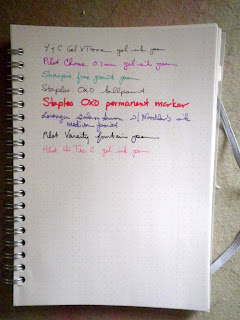 Y & C Gel Xtreme gel ink pen
Pilot Choose 0.7mm gel ink pen
Sharpie fine point pen
Staples OXO ballpoint
Staples OXO permanent marker
w/ Noodler's ink
medium point
Pilot Varsity fountain pen
Pilot Hi Tec C gel ink pen